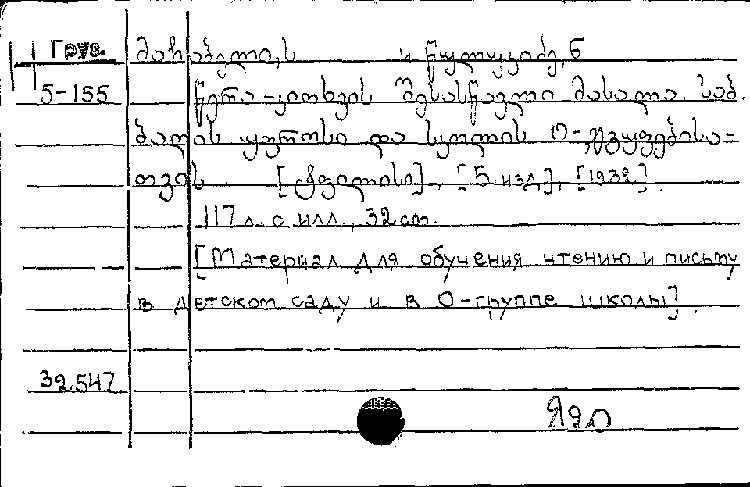 Груз.
5-155
მარჯველი, ს და წულუკიძე, ნ
წერა-კითხვის შესასწავლი მასალა საბ.
ბაღის უფროსი და სკოლის О-ჯგუფებისა-
თვის [ტფილისი], [5 изд], [1932].
117 л. с илл., 32 cm.
[Материал для обучения чтению и письму
в детском саду и в О-группе школы].
32.547